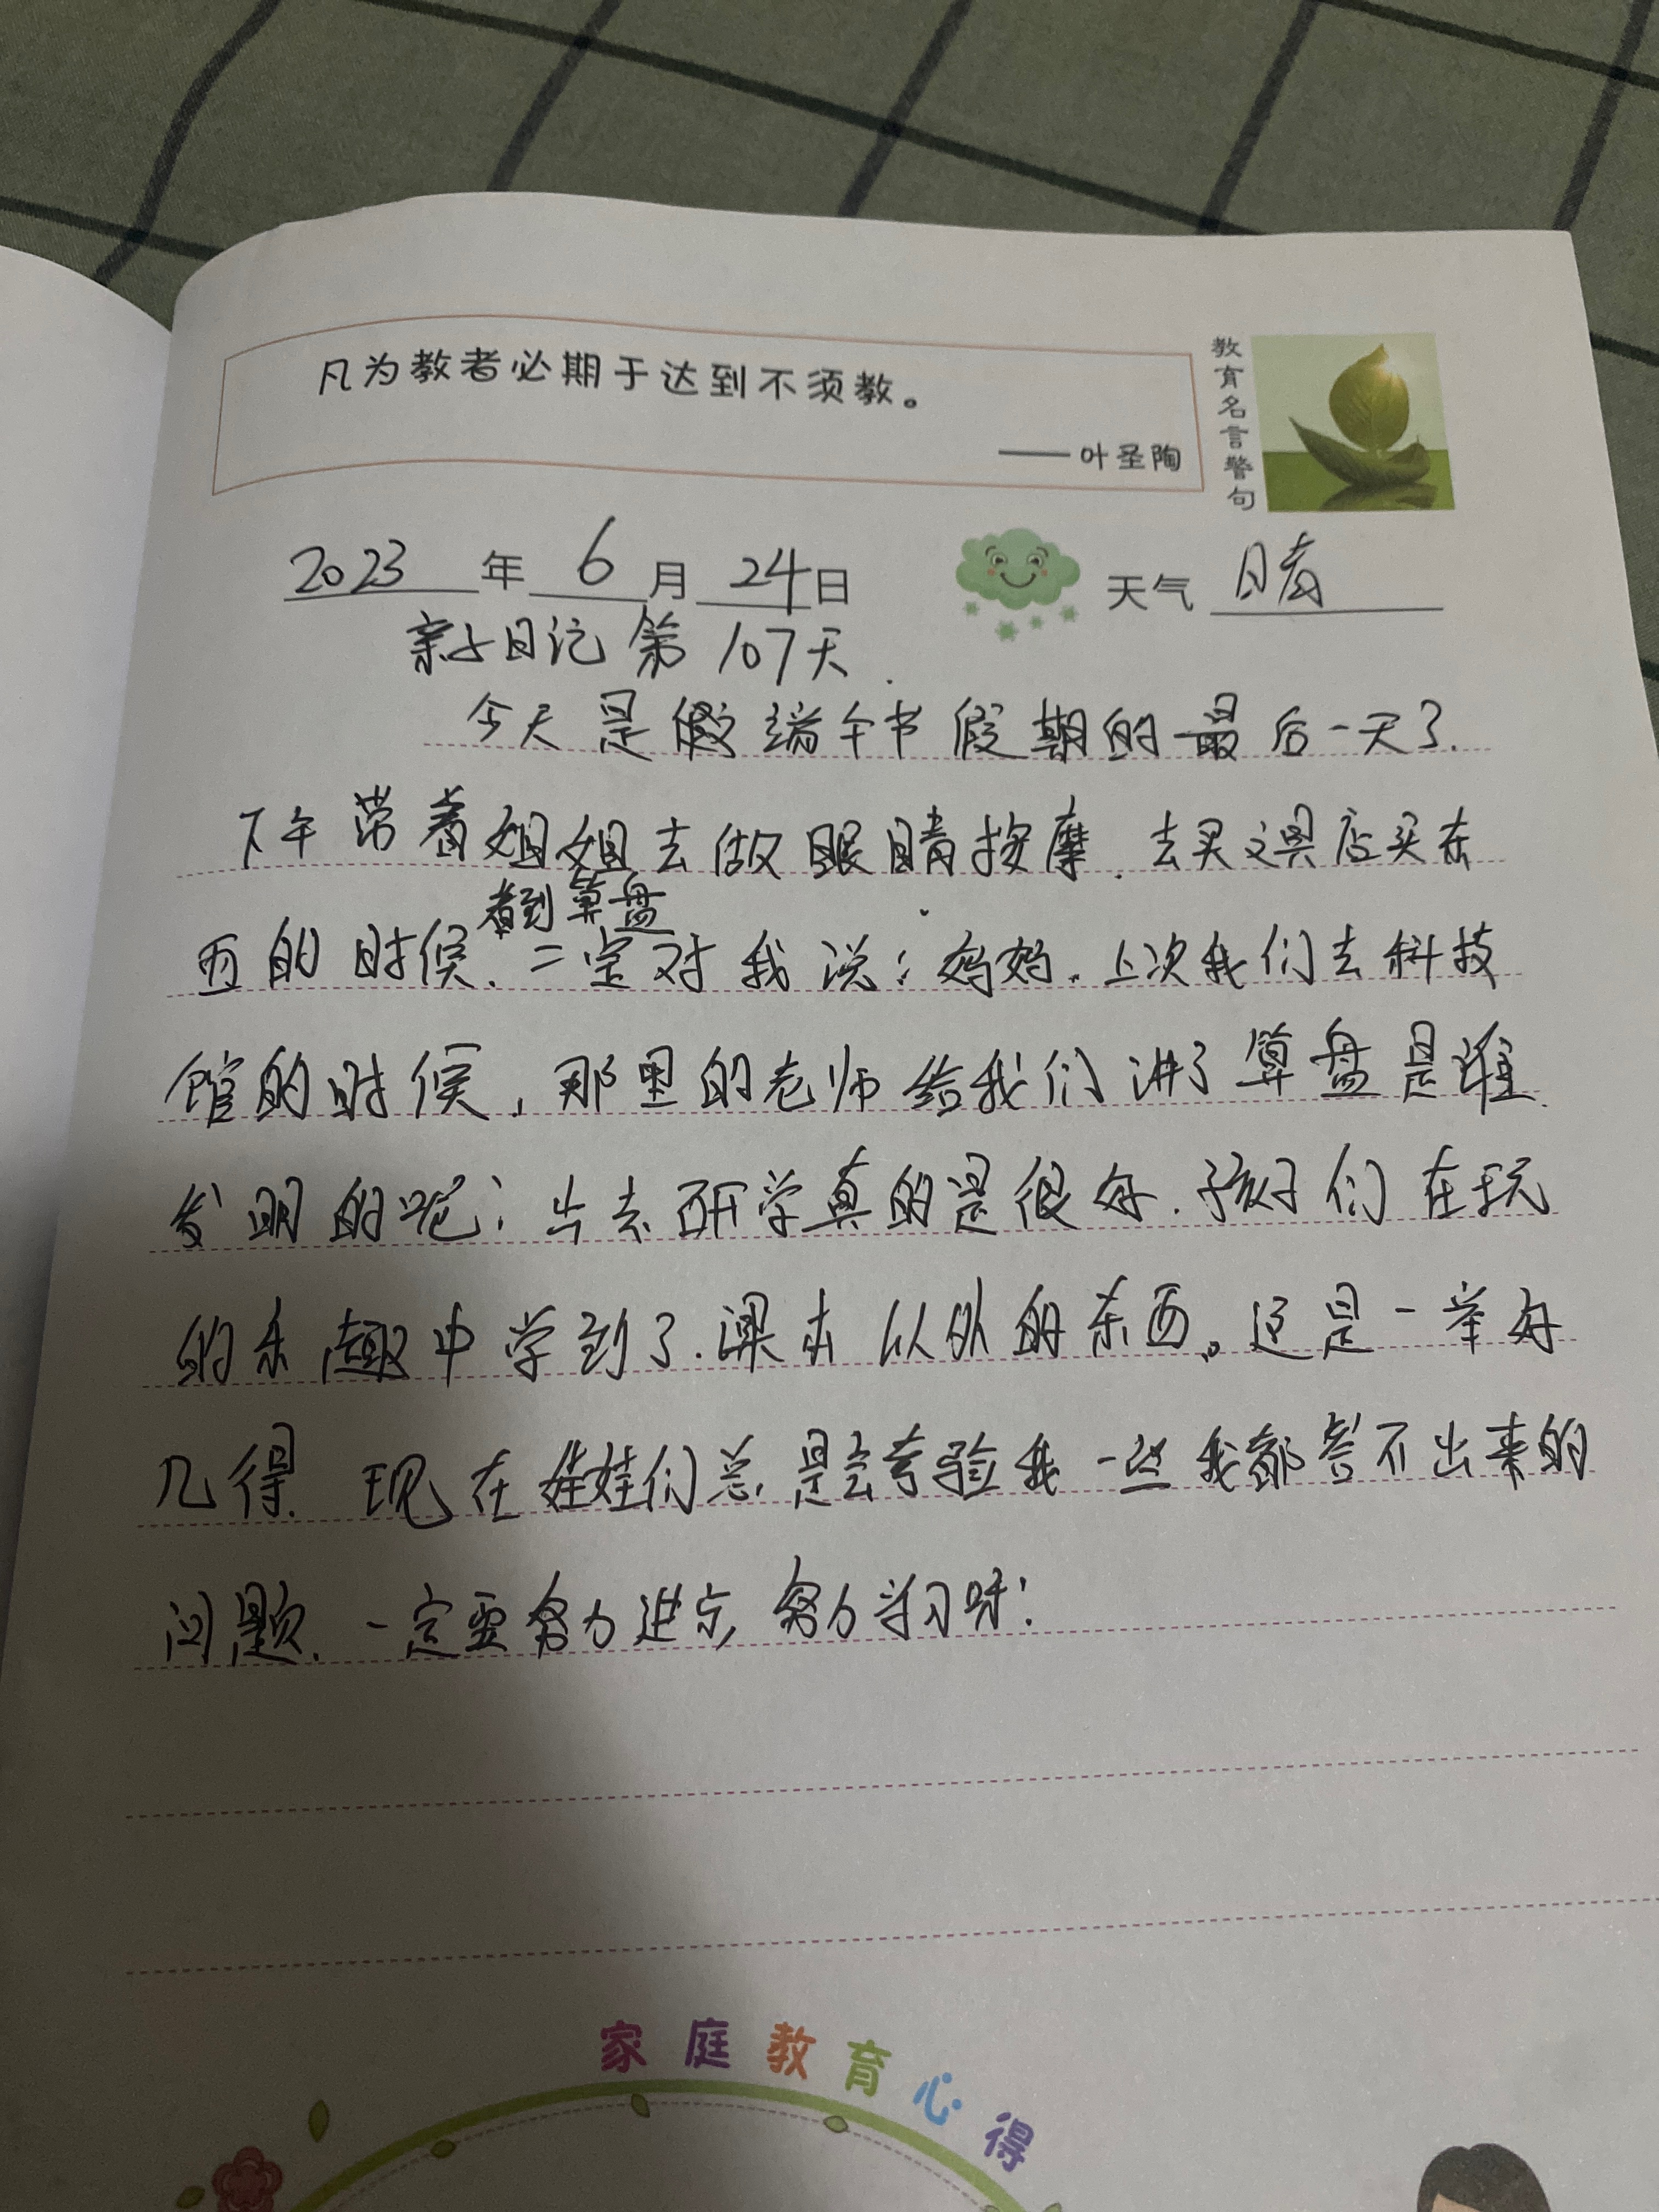 凡为教者必期于达到不须教。
——叶圣陶
教育名言警句
2023年6月24日 天气 晴
亲子日记第107天.
今天是假端午节假期的最后一天了.
下午带着姐姐去做眼睛按摩.去买文具店买东
看到算盘
西的时候.二宝对我说:妈妈.上次我们去科技
馆的时候,那里的老师给我们讲了算盘是谁
发明的呢;出去研学真的是很好.孩子们在玩
的乐趣中学到了.课本以外的东西。这是一举好
几得.现在娃娃们总是会考验我一些我都答不出来的
问题.一定要努力进步,努力学习呀!
家庭教育心得